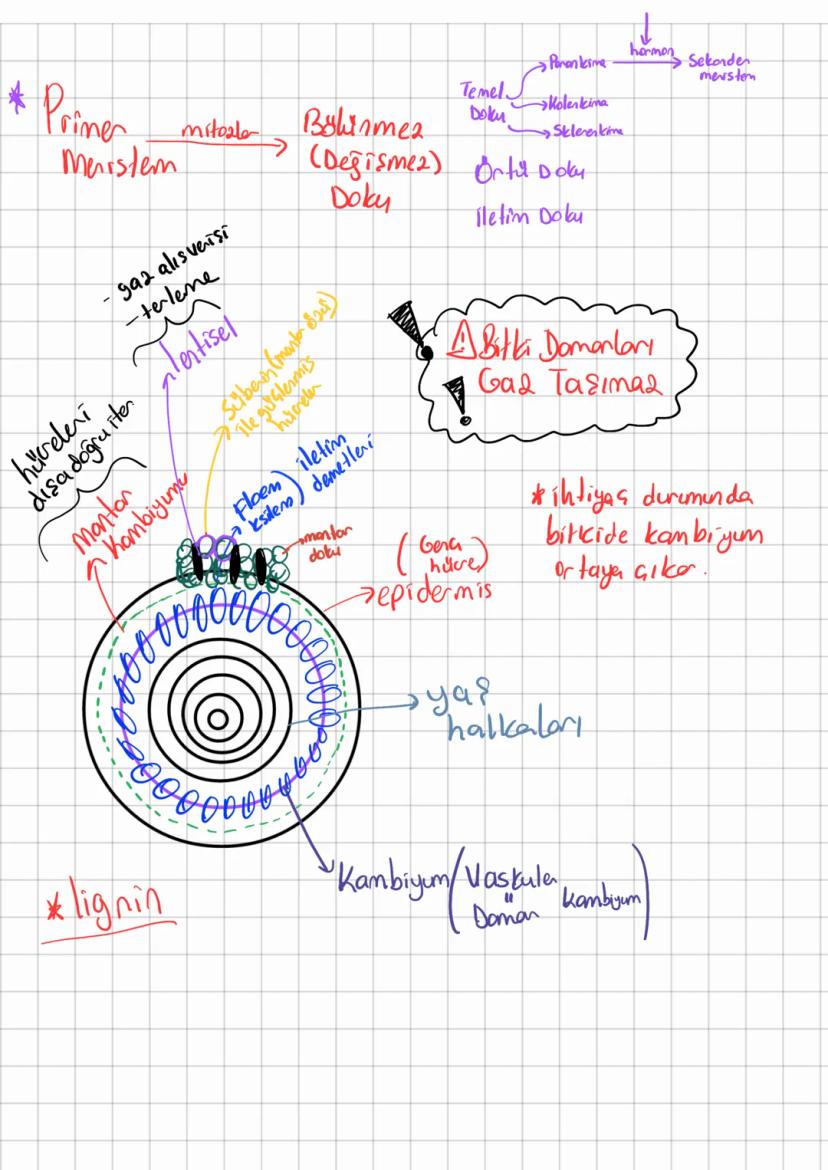 hormon
Parankima
Sekonder
meristem
Temel
Doku
Kolenkima
Sklerenkima
* Primer
Meristem
mitozlar
Bölünmez
(Değişmez)
Doku
Örtü Doku
İletim Doku
- gaz alışverişi
- terleme
lentisel
Süberin (mantar özü)
ile güçlenmiş
hücreler
hücreleri
dışa doğru iter
Mantar
Kambiyumu
Floem
ksilem
iletim
demetleri
mantar
doku
! ⚠ Bitki Damarları
! Gaz Taşımaz
* ihtiyaç durumunda
bitkide kambiyum
ortaya çıkar.
(Genç
hücre)
epidermis
yaş
halkaları
Kambiyum (Vasküler
=
Damar Kambiyum)
* lignin